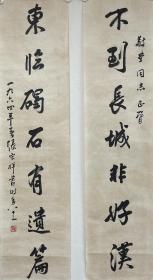 同志正腕
不到長城非好漢
東臨碣石有遺篇
一九六四年春張宗祥書時年八十三